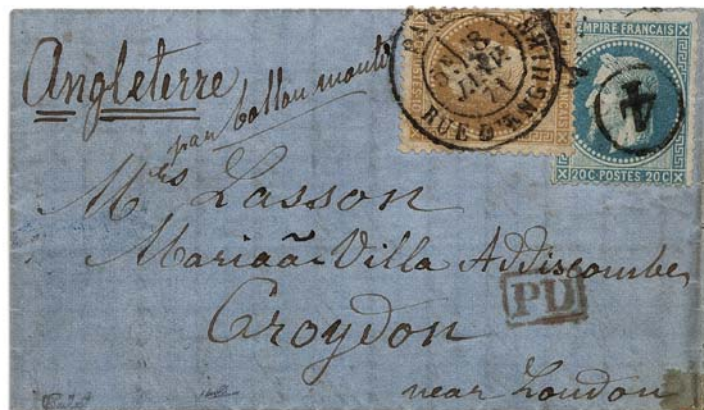 Angleterre
par ballon monté
PARIS
RUE D'ENGHIEN
8
JANV.
71
EMPIRE FRANÇAIS
4
20C POSTES 20C
Mrs Lasson
Mariaä Villa Addiscombe
PD
Croydon
near London